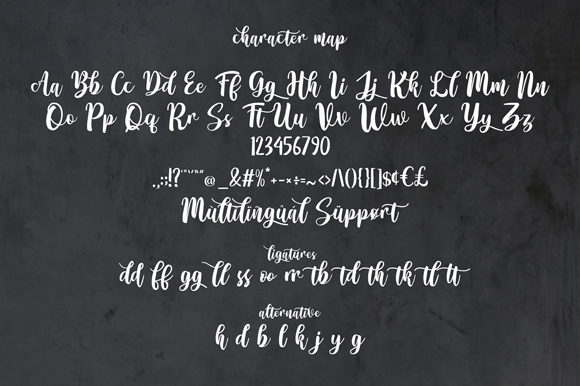 character map
Aa Bb Cc Dd Ee Ff Gg Hh Ii Jj Kk Ll Mm Nn
Oo Pp Qq Rr Ss Tt Uu Vv Ww Xx Yy Zz
123456790
.,:;!?'""'""@_&#%*+-×÷=~<>/\(){}[]$¢€£
Mùltïlîngûàl Süppørt
ligatures
dd ff gg ll ss oo rr tb td th tk tl tt
alternative
h d b l k j y g